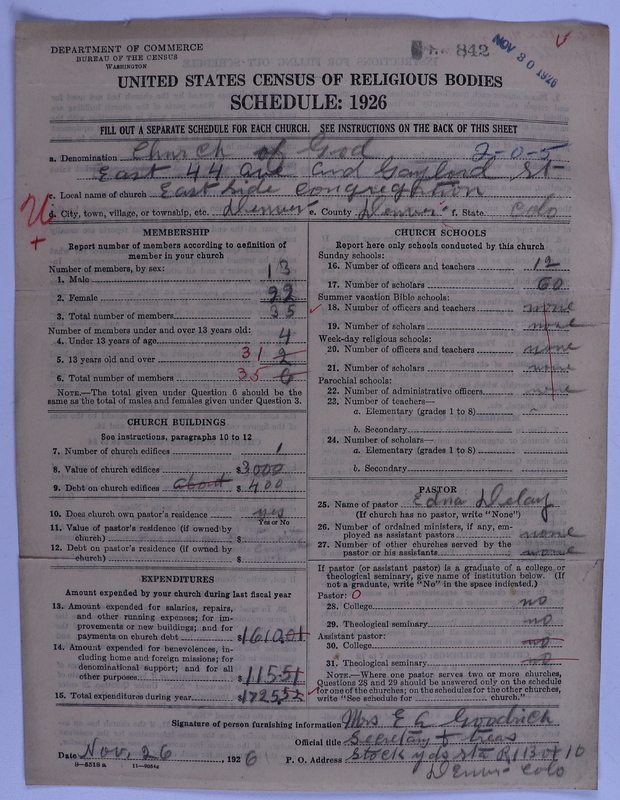 DEPARTMENT OF COMMERCE
BUREAU OF THE CENSUS
WASHINGTON
842
NOV 30 1926
UNITED STATES CENSUS OF RELIGIOUS BODIES
SCHEDULE: 1926
FILL OUT A SEPARATE SCHEDULE FOR EACH CHURCH. SEE INSTRUCTIONS ON THE BACK OF THIS SHEET
a. Denomination Church of God 2-0-5
East 44 ave and Gaylord St-
c. Local name of church East side congreghtion
d. City, town, village, or township, etc. Denver e. County Denver f. State Colo
MEMBERSHIP
Report number of members according to definition of
member in your church
Number of members, by sex:
1. Male 13
2. Female 22
3. Total number of members 35
Number of members under and over 13 years old:
4. Under 13 years of age 4
5. 13 years old and over 31 2
6. Total number of members 35 6
NOTE.—The total given under Question 6 should be
same as the total of males and females given under Question 3.
CHURCH BUILDINGS
See instructions, paragraphs 10 to 12
7. Number of church edifices 1
8. Value of church edifices $3000
9. Debt on church edifices about $400
10. Does church own pastor's residence yes
Yes or No
11. Value of pastor's residence (if owned by
church) $
12. Debt on pastor's residence (if owned by
church) $
EXPENDITURES
Amount expended by your church during last fiscal year
13. Amount expended for salaries, repairs,
and other running expenses; for im-
provements or new buildings; and for
payments on church debt $1610.01
14. Amount expended for benevolences, in-
cluding home and foreign missions; for
denominational support; and for all
other purposes 115.51
15. Total expenditures during year $1725.52
CHURCH SCHOOLS
Report here only schools conducted by this church
Sunday schools:
16. Number of officers and teachers 12
17. Number of scholars 60
Summer vacation Bible schools:
18. Number of officers and teachers none
19. Number of scholars none
Week-day religious schools:
20. Number of officers and teachers none
21. Number of scholars none
Parochial schools:
22. Number of administrative officers none
23. Number of teachers—
a. Elementary (grades 1 to 8)
b. Secondary
24. Number of scholars—
a. Elementary (grades 1 to 8)
b. Secondary
PASTOR
25. Name of pastor Edna Delay
(If church has no pastor, write "None")
26. Number of ordained ministers, if any, em-
ployed as assistant pastors none
27. Number of other churches served by the
pastor or his assistants none
If pastor (or assistant pastor) is a graduate of a college or
theological seminary, give name of institution below. (If
not a graduate, write "No" in the space indicated.)
Pastor: 0
28. College no
29. Theological seminary no
Assistant pastor:
30. College no
31. Theological seminary no
NOTE.—Where one pastor serves two or more churches,
Questions 28 and 29 should be answered only on the schedule
for one of the churches; on the schedules for the other churches,
write "See schedule for church."
Signature of person furnishing information Mrs E L Goodrich
Official title Secretary + treas
Date Nov. 26, 1926 P. O. Address Stock yds Sta R1 Box 10
8—5518a 11—9054a
Denver Colo